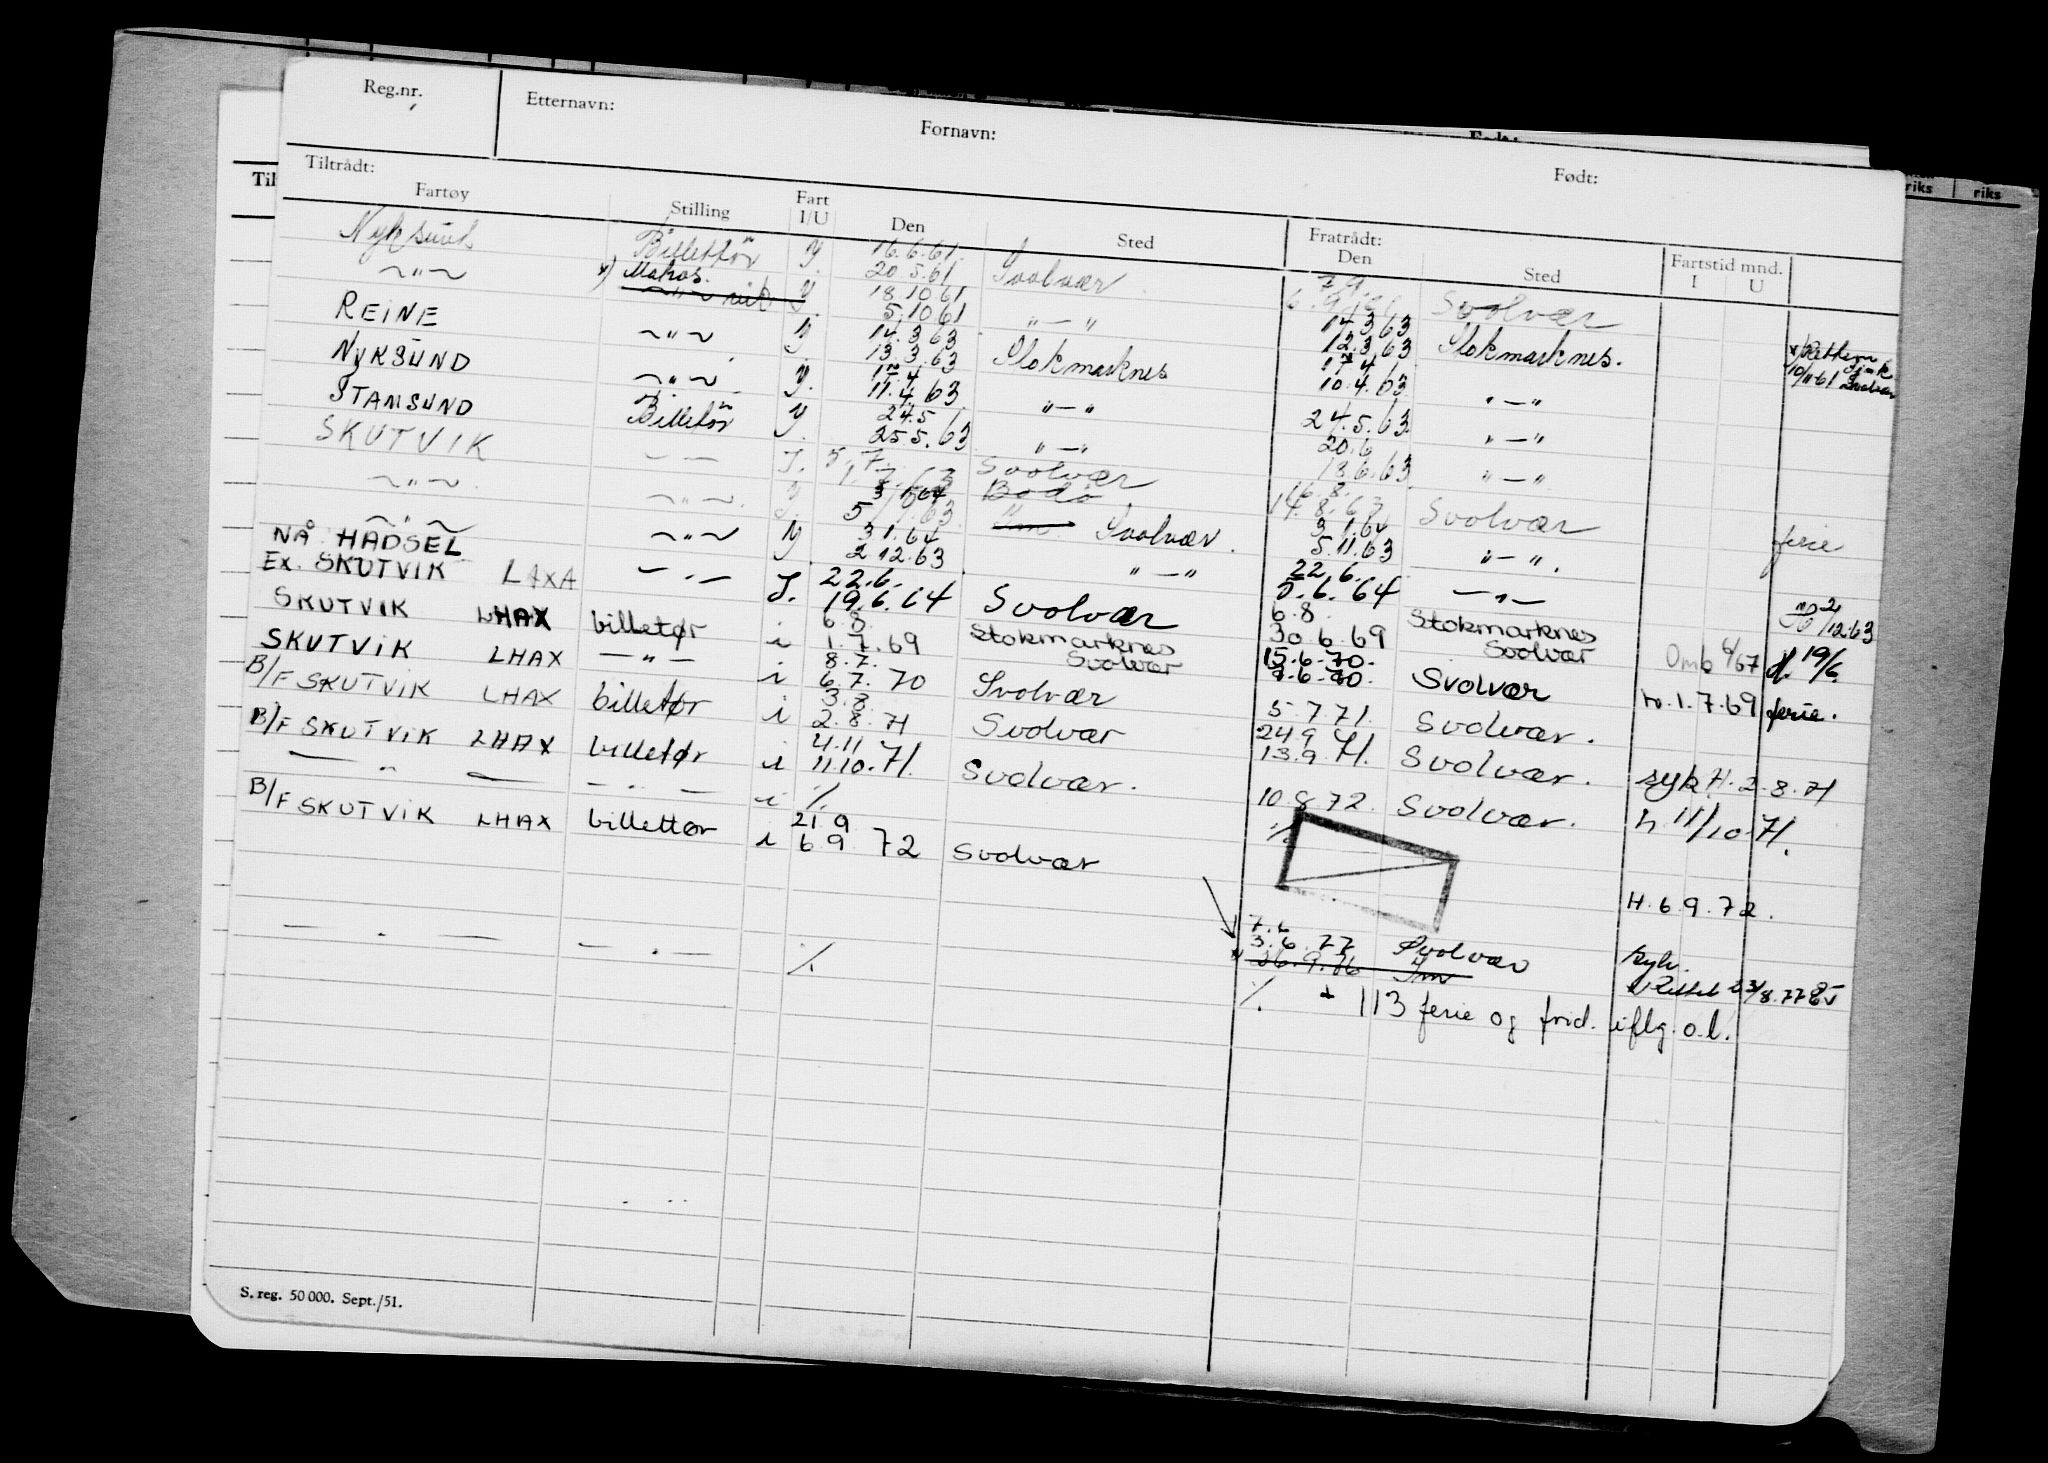 Reg.nr. Etternavn: Fornavn: Født:
Tiltrådt: Fratrådt: Fartstid mnd.
Fartøy Stilling Fart I/U Den Sted Den Sted I U
Nyksund Billettør 16.6.61
20.5.61 Svolvær
Matros 18.10.61 Svolvær
5.10.61
REINE 14.3.63 14.3.63
13.3.63 Stokmarknes 12.3.63 Stokmarknes.
NYKSUND 17.4 17.4
11.4.63 10.4.63
STAMSUND Billetør 24.5 24.5.63
25.5.63 20.6
SKUTVIK 18.6.63
5.7. Svolvær 16.8.
3.1.64 Bodø 14.8.63 Svolvær
ferie
3.1.64 Svolvær. 3.1.64
NÅ HADSEL 2.12.63 5.11.63
EX. SKUTVIK LAXA J. 22.6. 22.6.
19.6.64 Svolvær 5.6.64
SKUTVIK LHAX billetør i 6.8. Stokmarknes 6.8. Stokmarknes
1.7.69 Svolvær 30.6.69 Svolvær Omb 6/67 19/6
SKUTVIK LHAX — " — i 8.7. 15.6.70.
6.7.70 Svolvær 9.6.70. Svolvær h.1.7.69 ferie.
B/F SKUTVIK LHAX billetør i 3.8.
2.8.71 Svolvær 5.7.71. Svolvær.
B/F SKUTVIK LHAX billetør i 4.11 24.9
11.10.71. Svolvær. 13.9.71. Svolvær. syk H.2.8.71
— " — — " — i ./. 10.8.72. Svolvær. h 11/10.71.
B/F SKUTVIK LHAX billettør i 21.9 ./.
6.9.72 Svolvær
H.6.9.72.
— " — — " — ./. 7.6
3.6.77 Svolvær syk.
26.9.76
./. + 113 ferie og frid. iflg. o.l.
S. reg. 50 000. Sept./51.